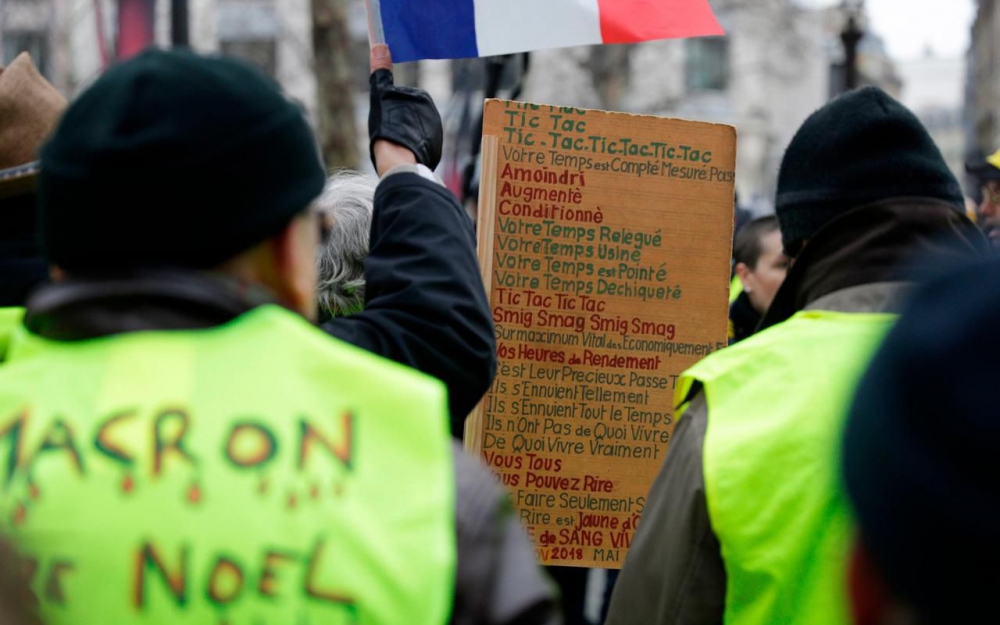 MACRON
NOEL
Tic Tac
Tic-Tac.Tic.Tac.Tic.Tac
Votre Temps est Compté Mesuré
Amoindri
Augmentè
Conditionnè
Votre Temps Relegué
Votre Temps Usiné
Votre Temps est Pointé
Votre Temps Dechiqueté
Tic Tac Tic Tac
Smig Smag Smig Smag
Surmaximum Vital des Economiquement
Vos Heures de Rendement
C'est Leur Precieux Passe T
Ils s'Ennuient Tellement
Ils s'Ennuient Tout le Temps
Ils n Ont Pas de Quoi Vivre
De Quoi Vivre Vraiment
Vous Tous
Vous Pouvez Rire
Faire Seulement
Rire est Jaune
de SANG
2018 MAI